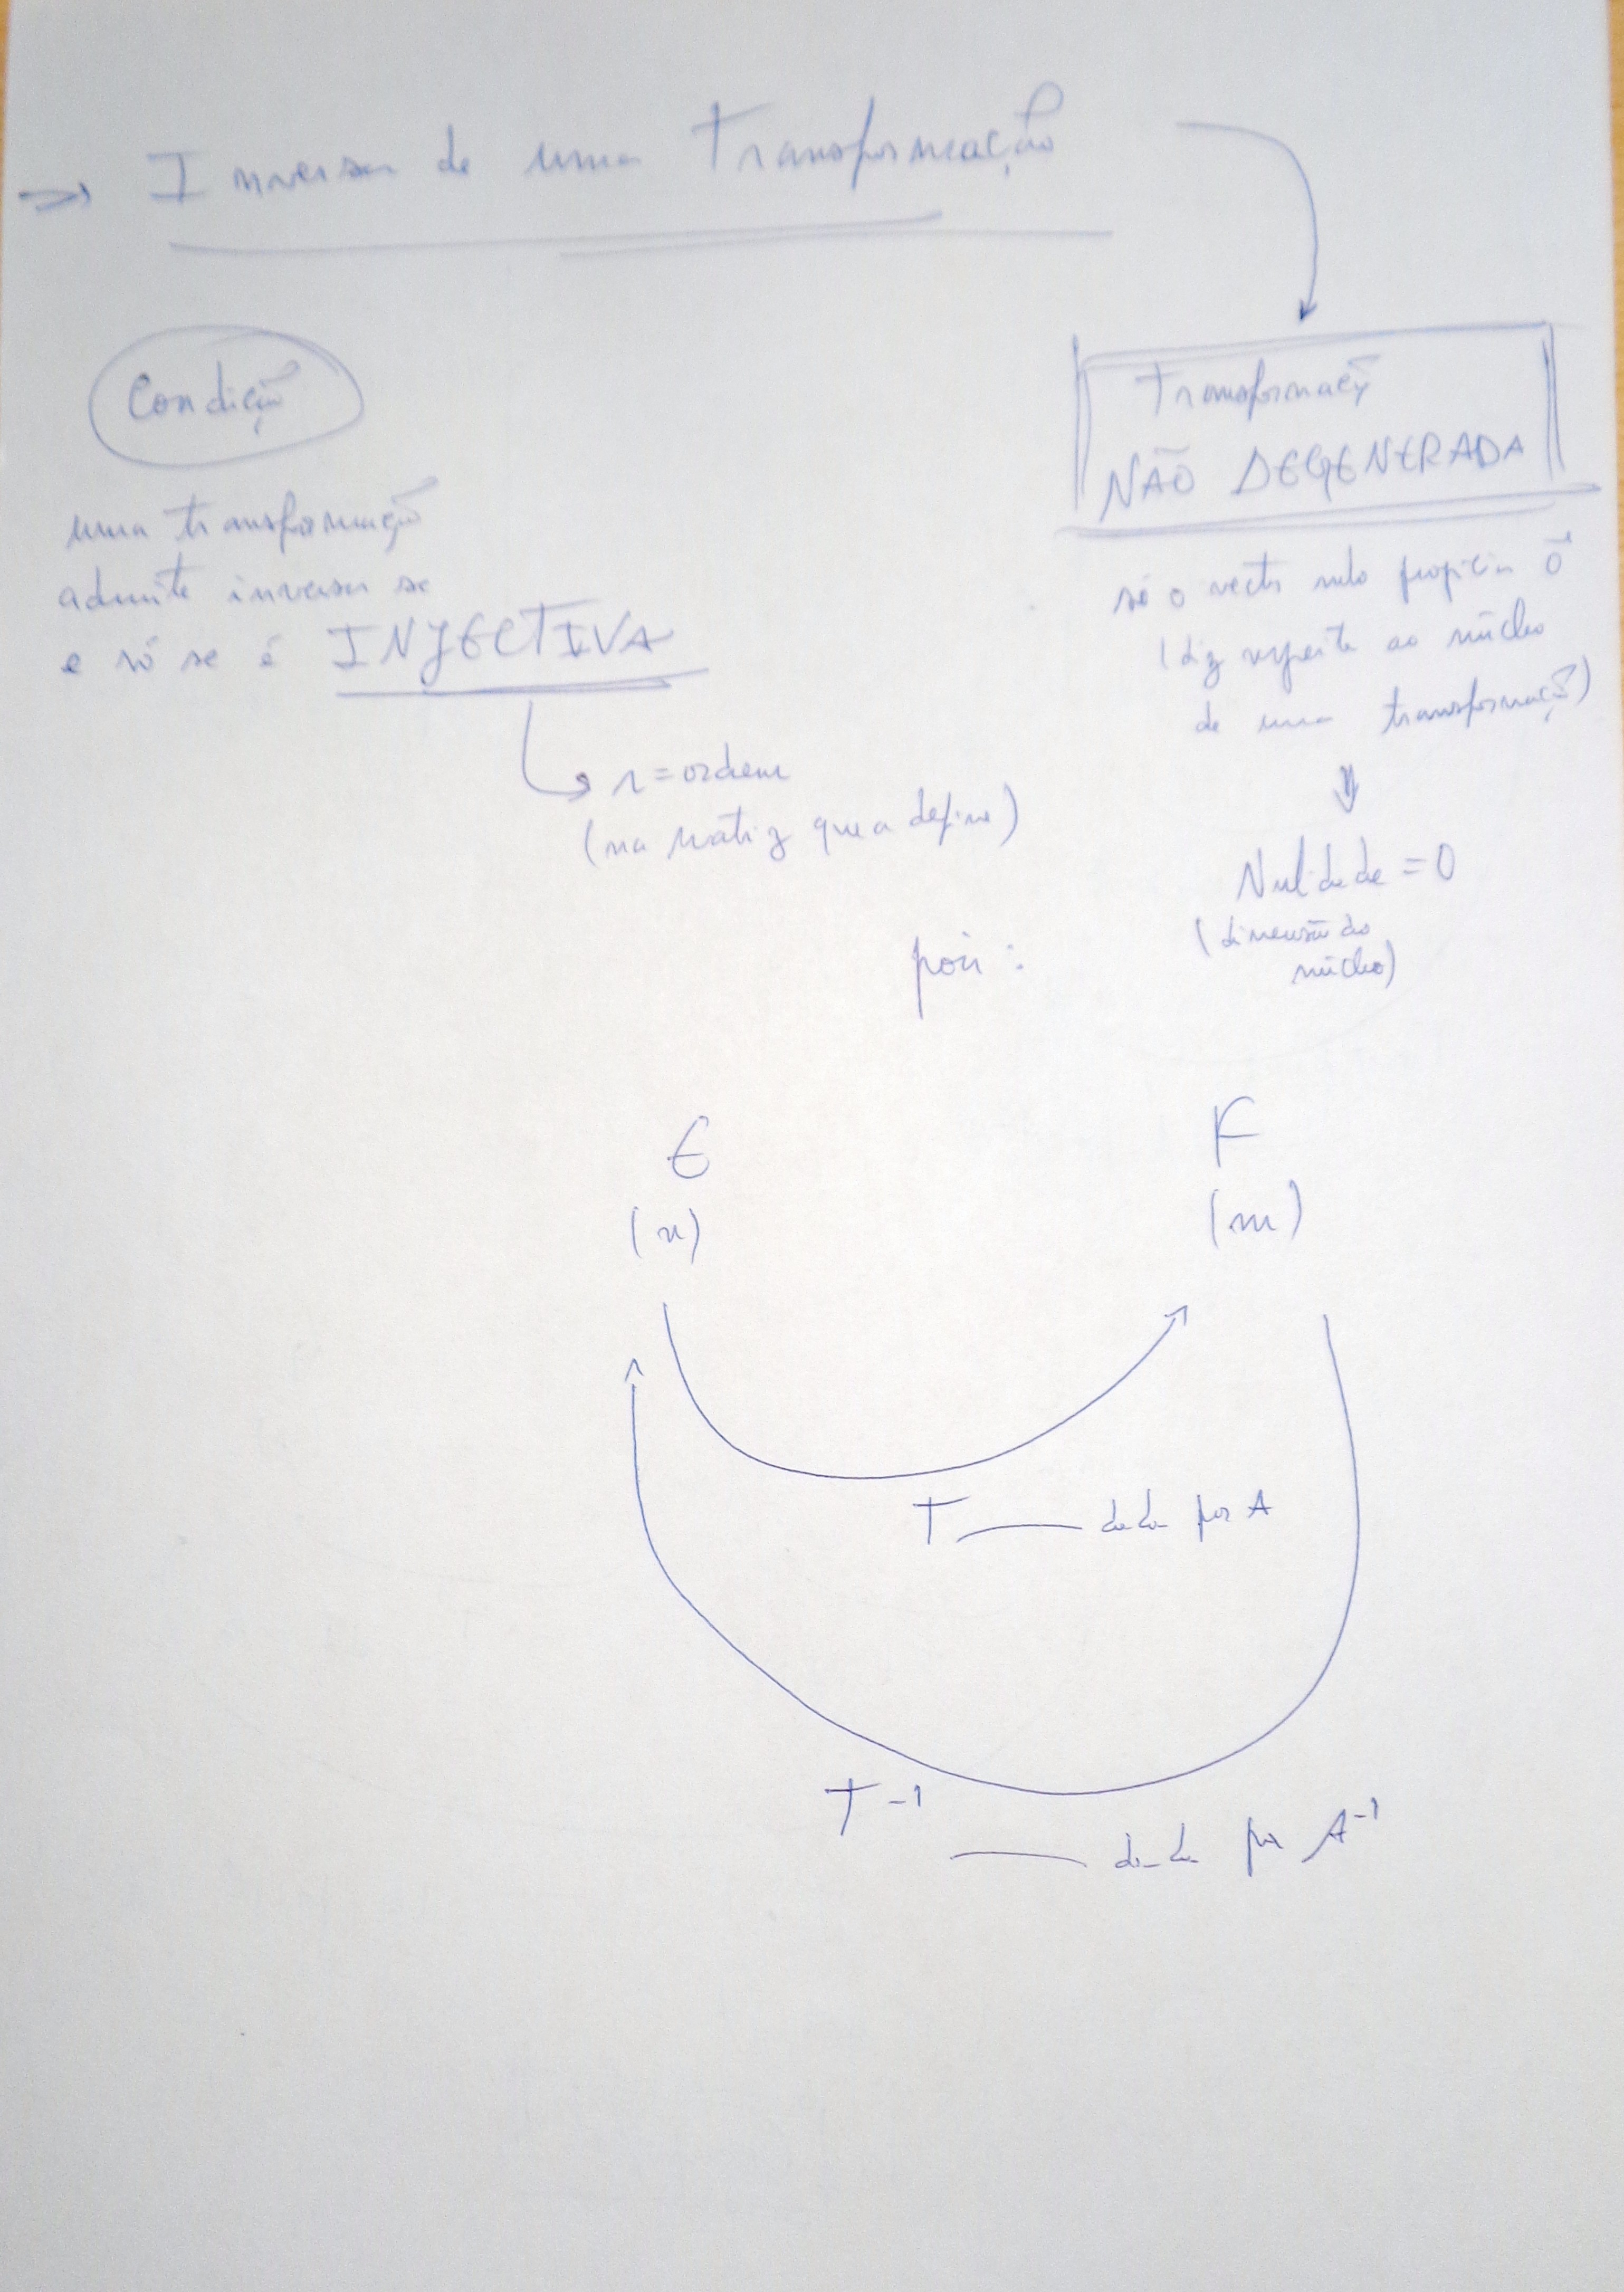 => Inversa de uma Transformação
Condição
uma transformação
admite inversa se
e só se é INJECTIVA
r = ordem
(na matriz que a define)
Transformação
NÃO DEGENERADA
só o vector nulo propicia 0⃗
(diz respeito ao núcleo
de uma transformação)
⇓
Nulidade = 0
(dimensão do
núcleo)
pois:
E F
(n) (m)
T — dada por A
T⁻¹ — dada por A⁻¹